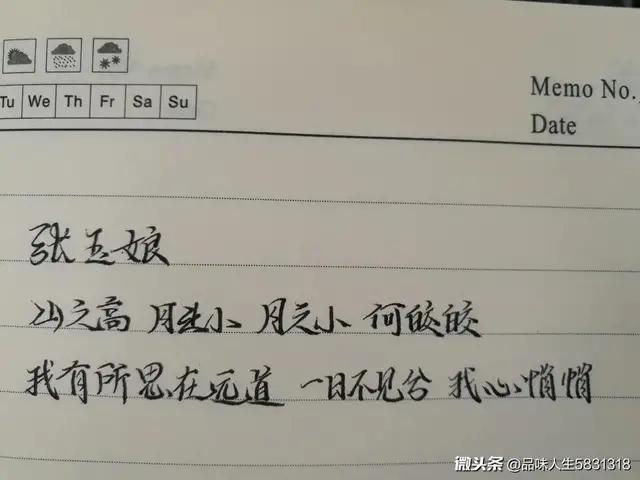 Memo No.
Tu We Th Fr Sa Su
Date
张玉娘
山之高 月出小 月之小 何皎皎
我有所思在远道 一日不见兮 我心悄悄
微头条@品味人生5831318